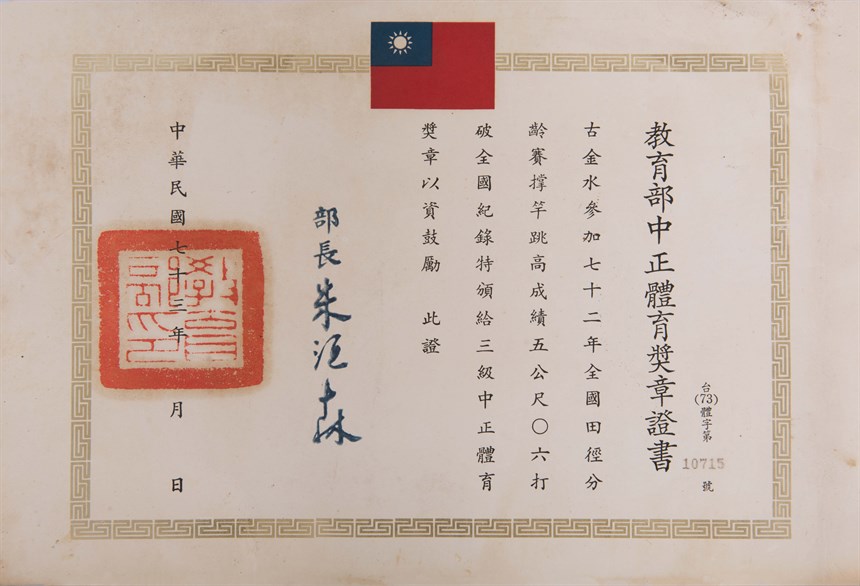 教育部中正體育獎章證書
台(73)體字第10715號
古金水參加七十二年全國田徑分
齡賽撐竿跳高成績五公尺〇六打
破全國紀錄特頒給三級中正體育
獎章以資鼓勵 此證
部長 朱滙森
中華民國七十三年 月 日
教育部印